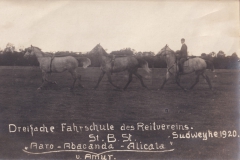 Dreifache Fahrschule des Reitvereins.
St. B. St. Sudweyhe 1920.
"Aaro - Abacanda - Alicala"
u. Amur.